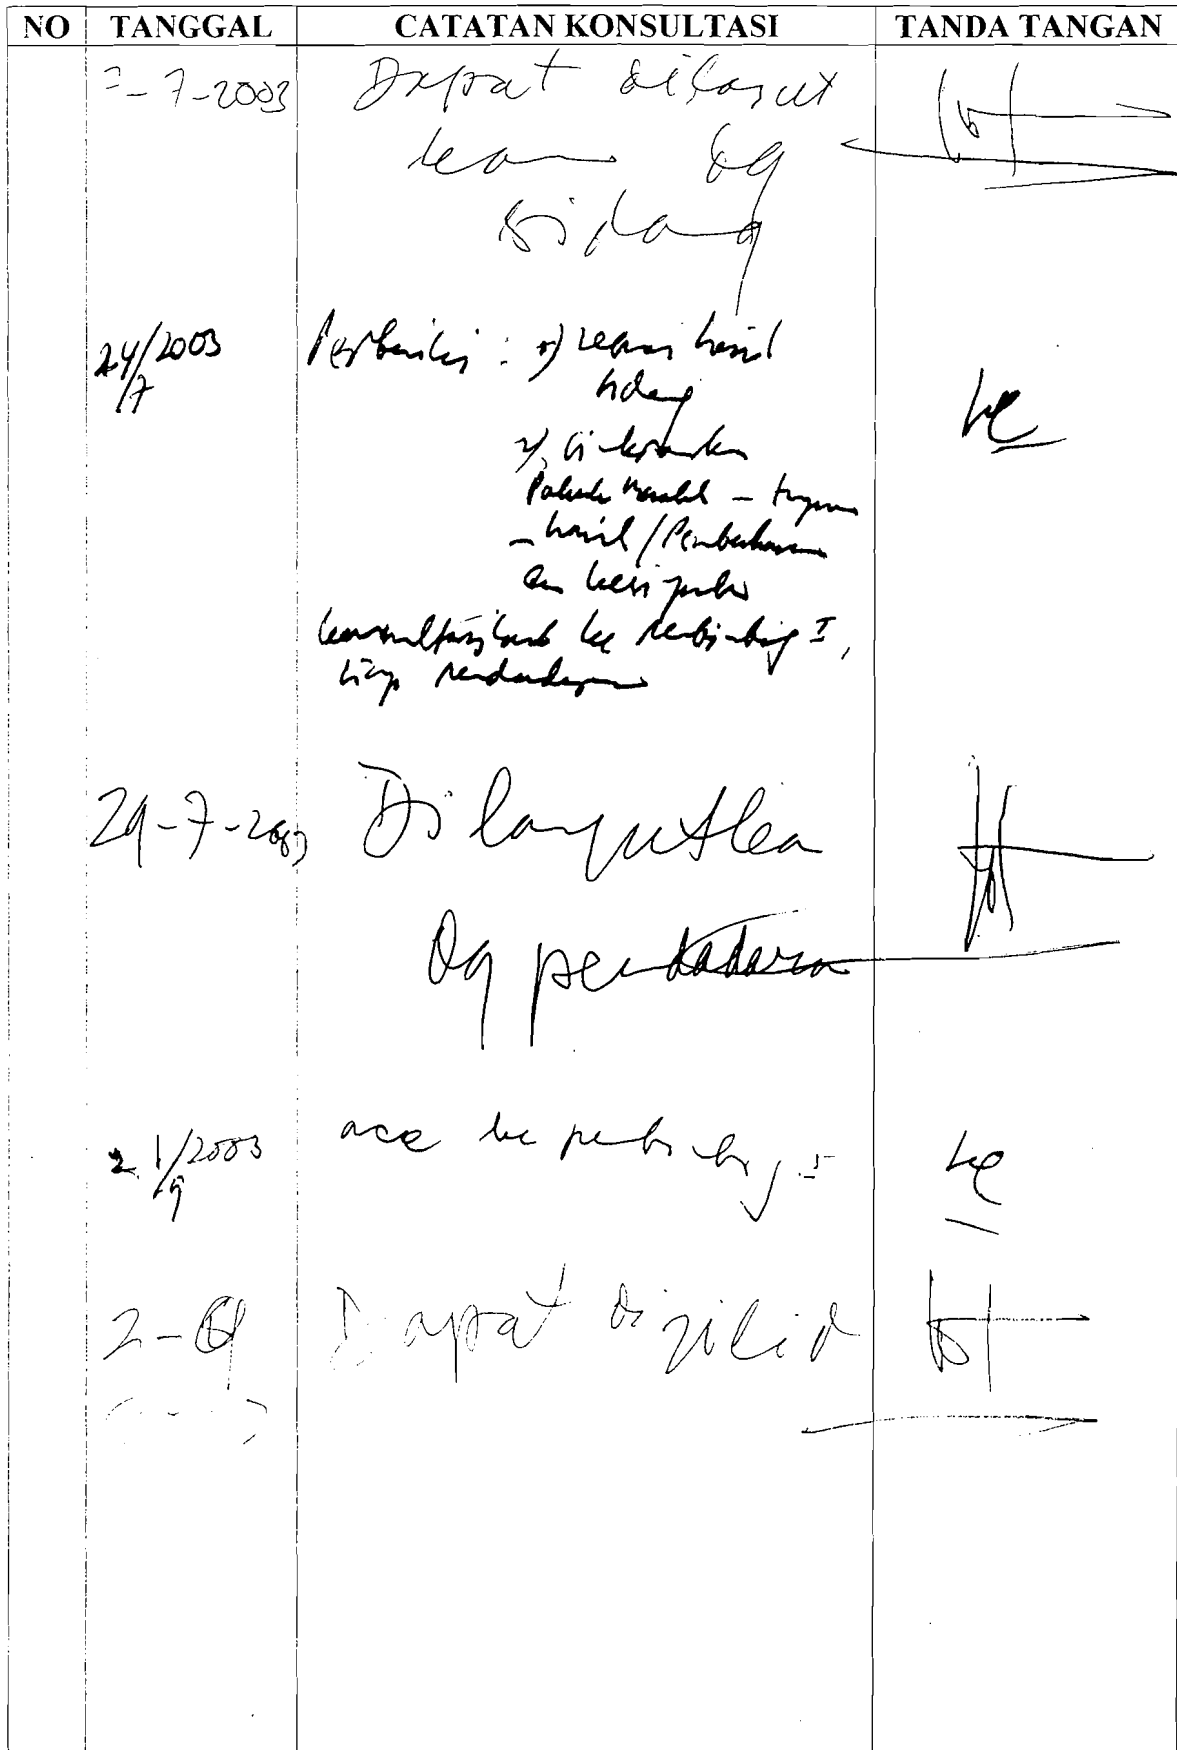 NO TANGGAL CATATAN KONSULTASI TANDA TANGAN
-7-2003 Dapat dilanjut
kan dg
sidang
24/7/2003 Perbaiki : 1) sesuai hasil
sidang
2),
masalah - tujuan
- hasil / Pembahasan
kesimpulan
konsultasikan ke pembimbing I,
siap pendadaran
29-7-2003 Dilanjutkan
dg pendadaran
1/9/2003 acc ke pembimbing I
2-9 Dapat dijilid